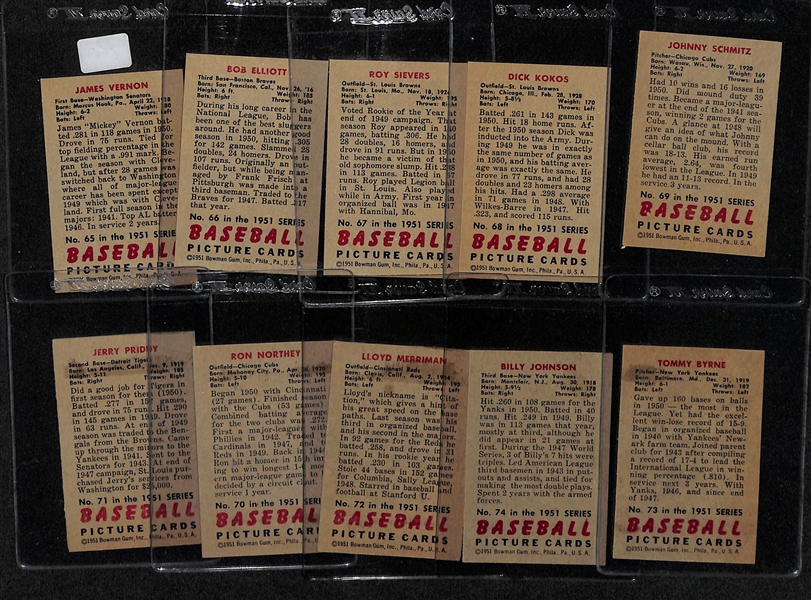 JAMES VERNON
First Base—Washington Senators
Born: Marcus Hook, Pa., April 22, 1918
Height: 6-2
Bats: Left
James "Mickey" Vernon batted
.281 in 118 games in 1950.
Drove in 75 runs. Tied for
top fielding percentage in the
League with a .991 mark. Be-
gan the season with Cleve-
land, but after 28 games was
switched back to Washington
where all of major-league
career has been spent except
1949 which was with Cleve-
land. First full season in the
majors: 1941. Top AL batter
1946. In service 2 years.
No. 65 in the 1951 SERIES
BASEBALL
PICTURE CARDS
©1951 Bowman Gum, Inc., Phila., Pa., U. S. A.
BOB ELLIOTT
Third Base—Boston Braves
Born: San Francisco, Cal., Nov. 26, '16
Height: 6 ft. Weight: 185
Bats: Right Throws: Right
During his long career in
National League, Bob has
been one of the sluggers
season in 1950, hitting .305
for 142 games. Slammed 28
doubles, 24 homers. Drove in
107 runs. Originally an out-
fielder, but while being man-
aged by Frank Frisch at
Pittsburgh was made into
a third baseman. Traded to the
Braves for 1947. Batted .317
that year.
No. 66 in the 1951 SERIES
BASEBALL
PICTURE CARDS
©1951 Bowman Gum, Inc., Phila., Pa., U. S. A.
ROY SIEVERS
Outfield—St. Louis Browns
Born: St. Louis, Mo., Nov. 18, 1926
Height: 6-1 Weight: 195
Bats: Right Throws: Right
Voted Rookie of the Year at
end of 1949 campaign. That
season Roy appeared in 140
games, batting .306. He had
28 doubles, 16 homers, and
drove in 91 runs. But in 1950
he became a victim of that
old sophomore slump. Hit .238
in 113 games. Batted in 57
runs. Roy played Legion ball
in St. Louis. Also played
while in Army. First year in
organized ball was in 1947
with Hannibal, Mo.
No. 67 in the 1951 SERIES
BASEBALL
PICTURE CARDS
©1951 Bowman Gum, Inc., Phila., Pa., U. S. A.
DICK KOKOS
Outfield—St. Louis Browns
Born: Chicago, Ill., Feb. 28, 1928
Height: 5-8½ Weight: 170
Bats: Left Throws: Left
Batted .261 in 143 games in
1950. Hit 18 home runs. Af-
ter the 1950 season Dick was
inducted into the Army. Dur-
ing 1949 he was in exactly
the same number of games as
in 1950, and his batting aver-
age was exactly the same. He
drove in 77 runs, and had 28
doubles and 23 homers among
his hits. Had a .298 average
in 71 games in 1948. With
Wilkes-Barre in 1947. Hit
.323, and scored 115 runs.
No. 68 in the 1951 SERIES
BASEBALL
PICTURE CARDS
©1951 Bowman Gum, Inc., Phila., Pa., U. S. A.
JOHNNY SCHMITZ
Pitcher—Chicago Cubs
Born: Wausau, Wis., Nov. 27, 1920
Height: 6-2 Weight: 169
Bats: Right Throws: Left
Had 10 wins and 16 losses in
1950. Did mound duty 39
times. Became a major-leagu-
er at the end of the 1941 sea-
son, winning 2 games for the
Cubs. A glance at 1948 will
give an idea of what Johnny
can do on the mound. With a
cellar ball club, his record
was 18-13. His earned run
average, 2.64, was fourth
lowest in the League. In 1949
he had an 11-13 record. In the
service 3 years.
No. 69 in the 1951 SERIES
BASEBALL
PICTURE CARDS
©1951 Bowman Gum, Inc., Phila., Pa., U. S. A.
JERRY PRIDDY
Second Base—Detroit Tigers
Born: Los Angeles, Calif., Nov. 9, 1919
Height: 5-11 Weight: 185
Bats: Right Throws: Right
Did a good job for Tigers in
first season for them (1950).
Batted .277 in 157 games,
driving in 75 runs. Hit .290
in 145 games in 1949. Drove
in 63 runs. At end of 1949
season was traded to the Ben-
gals from the Browns. Came
up through the minors to the
Yankees in 1941. Sent to the
Senators for 1943. At end of
1947 campaign, St. Louis pur-
chased Jerry's services from
Washington for $25,000.
No. 71 in the 1951 SERIES
BASEBALL
PICTURE CARDS
©1951 Bowman Gum, Inc., Phila., Pa., U. S. A.
RON NORTHEY
Outfield—Chicago Cubs
Born: Mahanoy City, Pa., Apr. 26, 1920
Height: 5-10 Weight: 195
Bats: Left Throws: Right
Began 1950 with Cincinnati
(27 games). Finished up
with the Cubs (53 games).
Combined batting average
for the two clubs was .272.
First a major-leaguer with
Phillies in 1942. Traded to
Cardinals in 1947, and to
Reds in 1949. Back in 1944
Ron hit a homer in 15th inn-
ing to win longest 1-0 mod-
ern major-league game ever
decided by a circuit clout.
In service 1 year.
No. 70 in the 1951 SERIES
BASEBALL
PICTURE CARDS
©1951 Bowman Gum, Inc., Phila., Pa., U. S. A.
LLOYD MERRIMAN
Outfield—Cincinnati Reds
Born: Clovis, Calif., Aug. 2, 1924
Height: 6 ft. Weight: 190
Bats: Left Throws: Left
Lloyd's nickname is "Cita-
tion," which gives a hint of
his great speed on the base
paths. Last season was his
third in organized baseball.
In 92 games for the Reds he
batted .258, and drove in 31
runs. In his rookie year he
batted .230 in 103 games.
Stole 44 bases in 152 games
for Columbia, Sally League,
in 1948. Starred in baseball
and football at Stanford U.
No. 72 in the 1951 SERIES
BASEBALL
PICTURE CARDS
©1951 Bowman Gum, Inc., Phila., Pa., U. S. A.
BILLY JOHNSON
Third Base—New York Yankees
Born: Montclair, N.J., Aug. 30, 1918
Height: 5-9½ Weight: 178
Bats: Right Throws: Right
Hit .260 in 108 games for the
Yanks in 1950. Batted in 40
runs. Hit .249 in 1949. Billy
was in 113 games that year,
mostly at third, although he
did appear in 21 games at
first. During the 1947 World
Series, 3 of Billy's 7 hits were
triples. Led American League
third basemen in 1943 in put-
outs and assists, and tied for
making the most double plays.
Spent 2 years with the armed
forces.
No. 74 in the 1951 SERIES
BASEBALL
PICTURE CARDS
©1951 Bowman Gum, Inc., Phila., Pa., U. S. A.
TOMMY BYRNE
Pitcher—New York Yankees
Born: Baltimore, Md., Dec. 31, 1919
Height: 6-1 Weight: 187
Bats: Left Throws: Left
Gave up 160 bases on balls
in 1950 — the most in the
League. Yet had the excel-
lent win-record of 15-9.
Began in organized baseball
in 1940 with Yankees' New-
ark farm team. Joined parent
club for 1943 after compiling
a record of 17-4 to lead the
International League in win-
ning percentage (.810). In
service next 3 years. With
Yanks, 1946, and since end
of 1947.
No. 73 in the 1951 SERIES
BASEBALL
PICTURE CARDS
©1951 Bowman Gum, Inc., Phila., Pa., U. S. A.